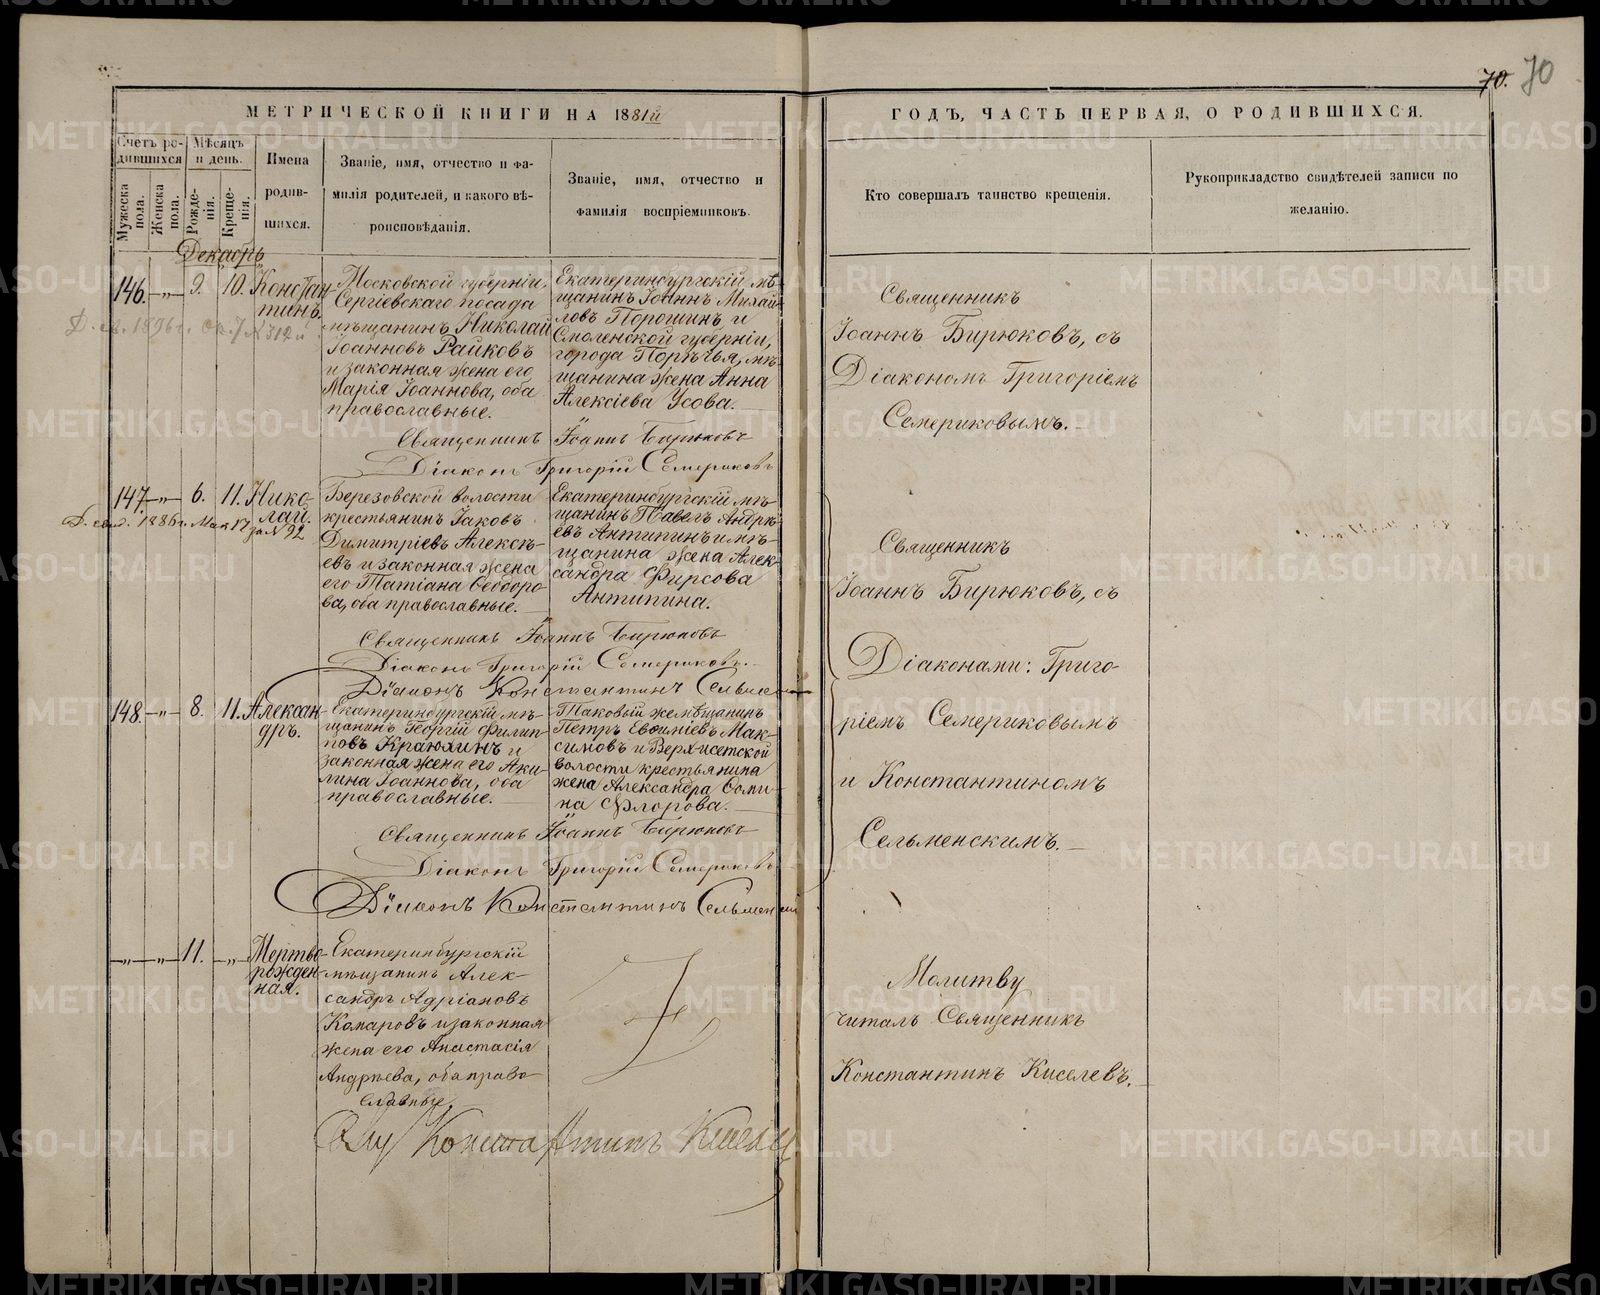 70. 70
МЕТРИЧЕСКОЙ КНИГИ НА 1881й
ГОДЪ, ЧАСТЬ ПЕРВАЯ, О РОДИВШИХСЯ.
Счетъ ро-
дившихся
Мужеска пола.
Женска пола.
Мѣсяцъ
и день.
Рожде-
нія.
Креще-
нія.
Имена
родив-
шихся.
Званіе, имя, отчество и фа-
милія родителей, и какого вѣ-
роисповѣданія.
Званіе, имя, отчество и
фамилія воспріемниковъ.
Кто совершалъ таинство крещенія.
Рукоприкладство свидѣтелей записи по
желанію.
Декабрь
146. —„— 9. 10. Констан-
тинъ.
Московской губерніи,
Сергіевскаго посада
мѣщанинъ Николай
Іоанновъ Райковъ
и законная жена его
Марія Іоаннова, оба
православные.
Екатеринбургскій мѣ-
щанинъ Іоаннъ Михай-
ловъ Порошинъ и
Смоленской губерніи,
города Порѣчья, мѣ-
щанина жена Анна
Алексіева Усова.
Священникъ
Іоаннъ Бирюковъ, съ
Діакономъ Григоріемъ
Семериковымъ.
Д. св. 1896 г.
Священникъ Іоаннъ Бирюковъ
Діаконъ Григорій Семериковъ
147. —„— 6. 11. Нико-
лай.
Д. свид. 1886 г. Мая 17
за № 92
Березовской волости
крестьянинъ Іаковъ
Димитріевъ Алексѣ-
евъ и законная жена
его Татіана Ѳеодоро-
ва, оба православные.
Екатеринбургскій мѣ-
щанинъ Павелъ Андре-
евъ Антипинъ и мѣ-
щанина жена Алек-
сандра Фирсова
Антипина.
Священникъ Іоаннъ Бирюковъ
Діаконъ Григорій Семериковъ.
Діаконъ Константинъ Сельменскій
Священникъ
Іоаннъ Бирюковъ, съ
Діаконами: Григо-
ріемъ Семериковымъ
и Константиномъ
Сельменскимъ.
148. —„— 8. 11. Алексан-
дръ.
Екатеринбургскій мѣ-
щанинъ Георгій Филип-
повъ Краюхинъ и
законная жена его Аки-
лина Іоаннова, оба
православные.
Таковый же мѣщанинъ
Петръ Евѳиміевъ Мак-
симовъ и Верх-исетской
волости крестьянина
жена Александра Ѳоми-
на Флорова.
Священникъ Іоаннъ Бирюковъ
Діаконъ Григорій Семериковъ
Діаконъ Константинъ Сельменскій
—„— —„— 11. —„— Мертво-
рожден-
ная.
Екатеринбургскій
мѣщанинъ Алек-
сандръ Адріановъ
Комаровъ и законная
жена его Анастасія
Андреева, оба право-
славные.
Молитву
читалъ Священникъ
Константинъ Киселевъ.
Константинъ Киселевъ
METRIKI.GASO-URAL.RU